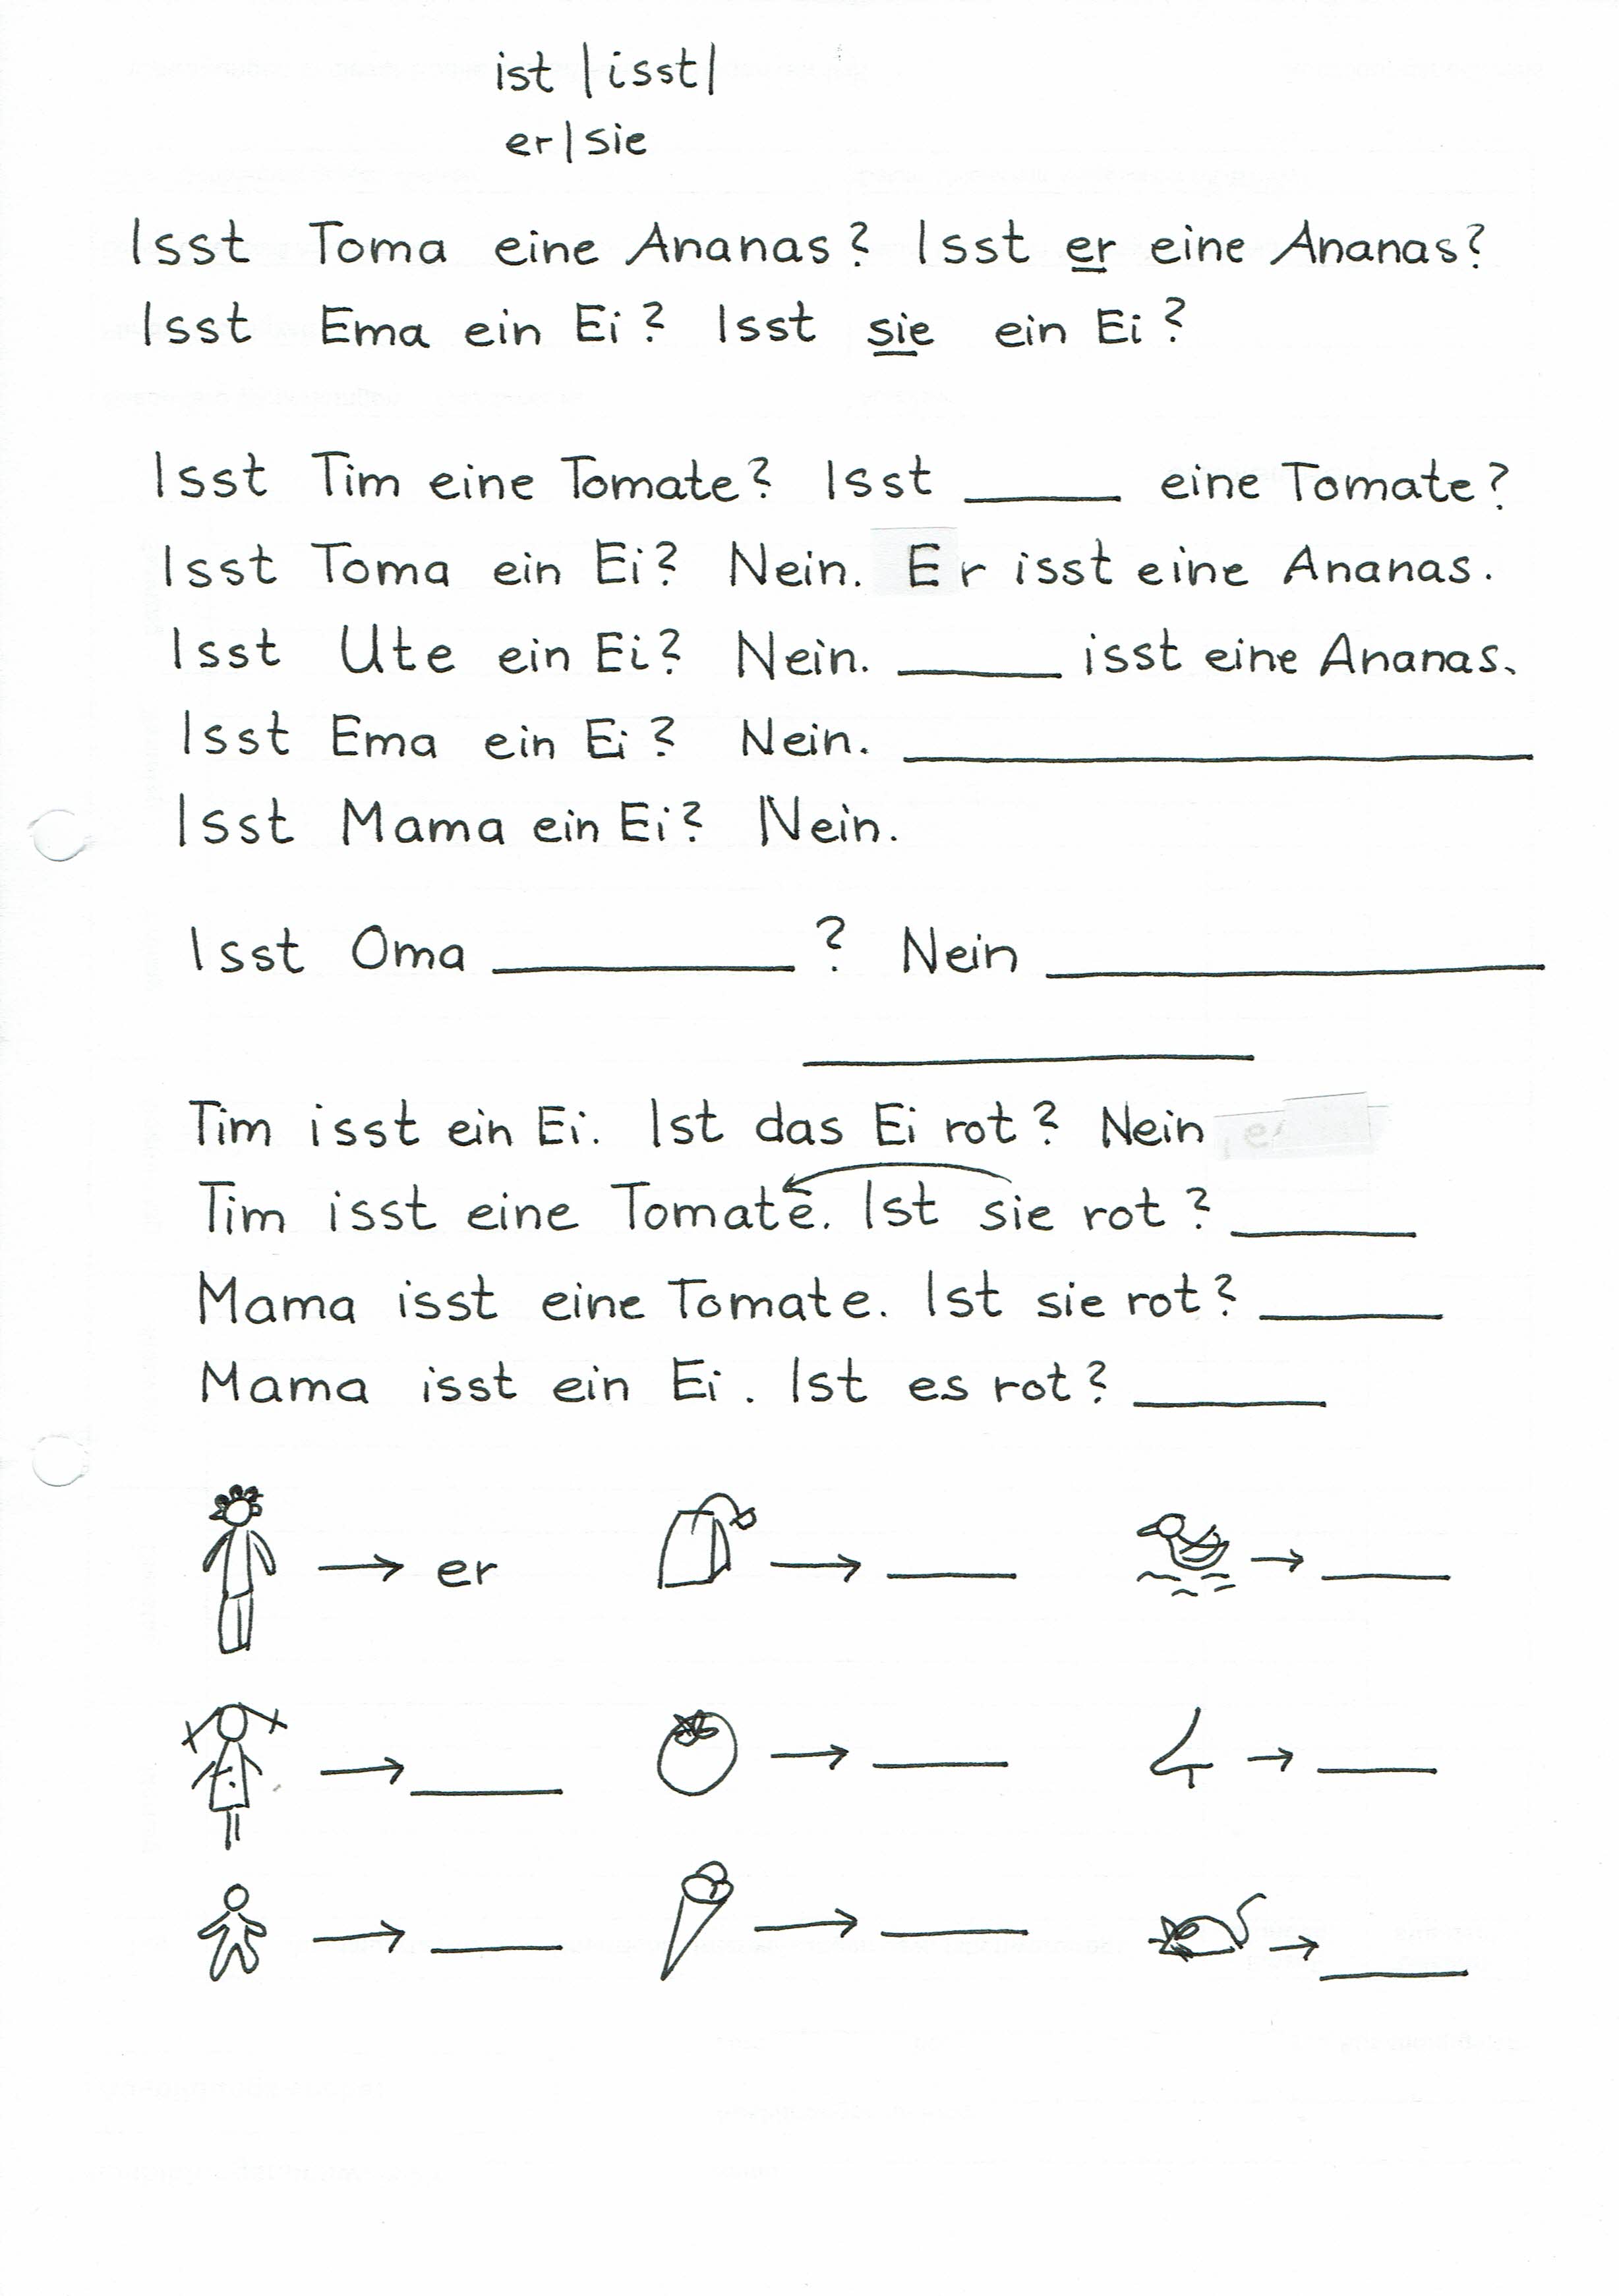 ist |isst|
er|sie
Isst Toma eine Ananas? Isst er eine Ananas?
Isst Ema ein Ei? Isst sie ein Ei?
Isst Tim eine Tomate? Isst ____ eine Tomate?
Isst Toma ein Ei? Nein. Er isst eine Ananas.
Isst Ute ein Ei? Nein. ____ isst eine Ananas.
Isst Ema ein Ei? Nein. ____
Isst Mama ein Ei? Nein.
Isst Oma ____? Nein ____
____
Tim isst ein Ei. Ist das Ei rot? Nein
Tim isst eine Tomate. Ist sie rot? ____
Mama isst eine Tomate. Ist sie rot? ____
Mama isst ein Ei. Ist es rot? ____
→ er → ____ → ____
→ ____ → ____ → ____
→ ____ → ____ → ____